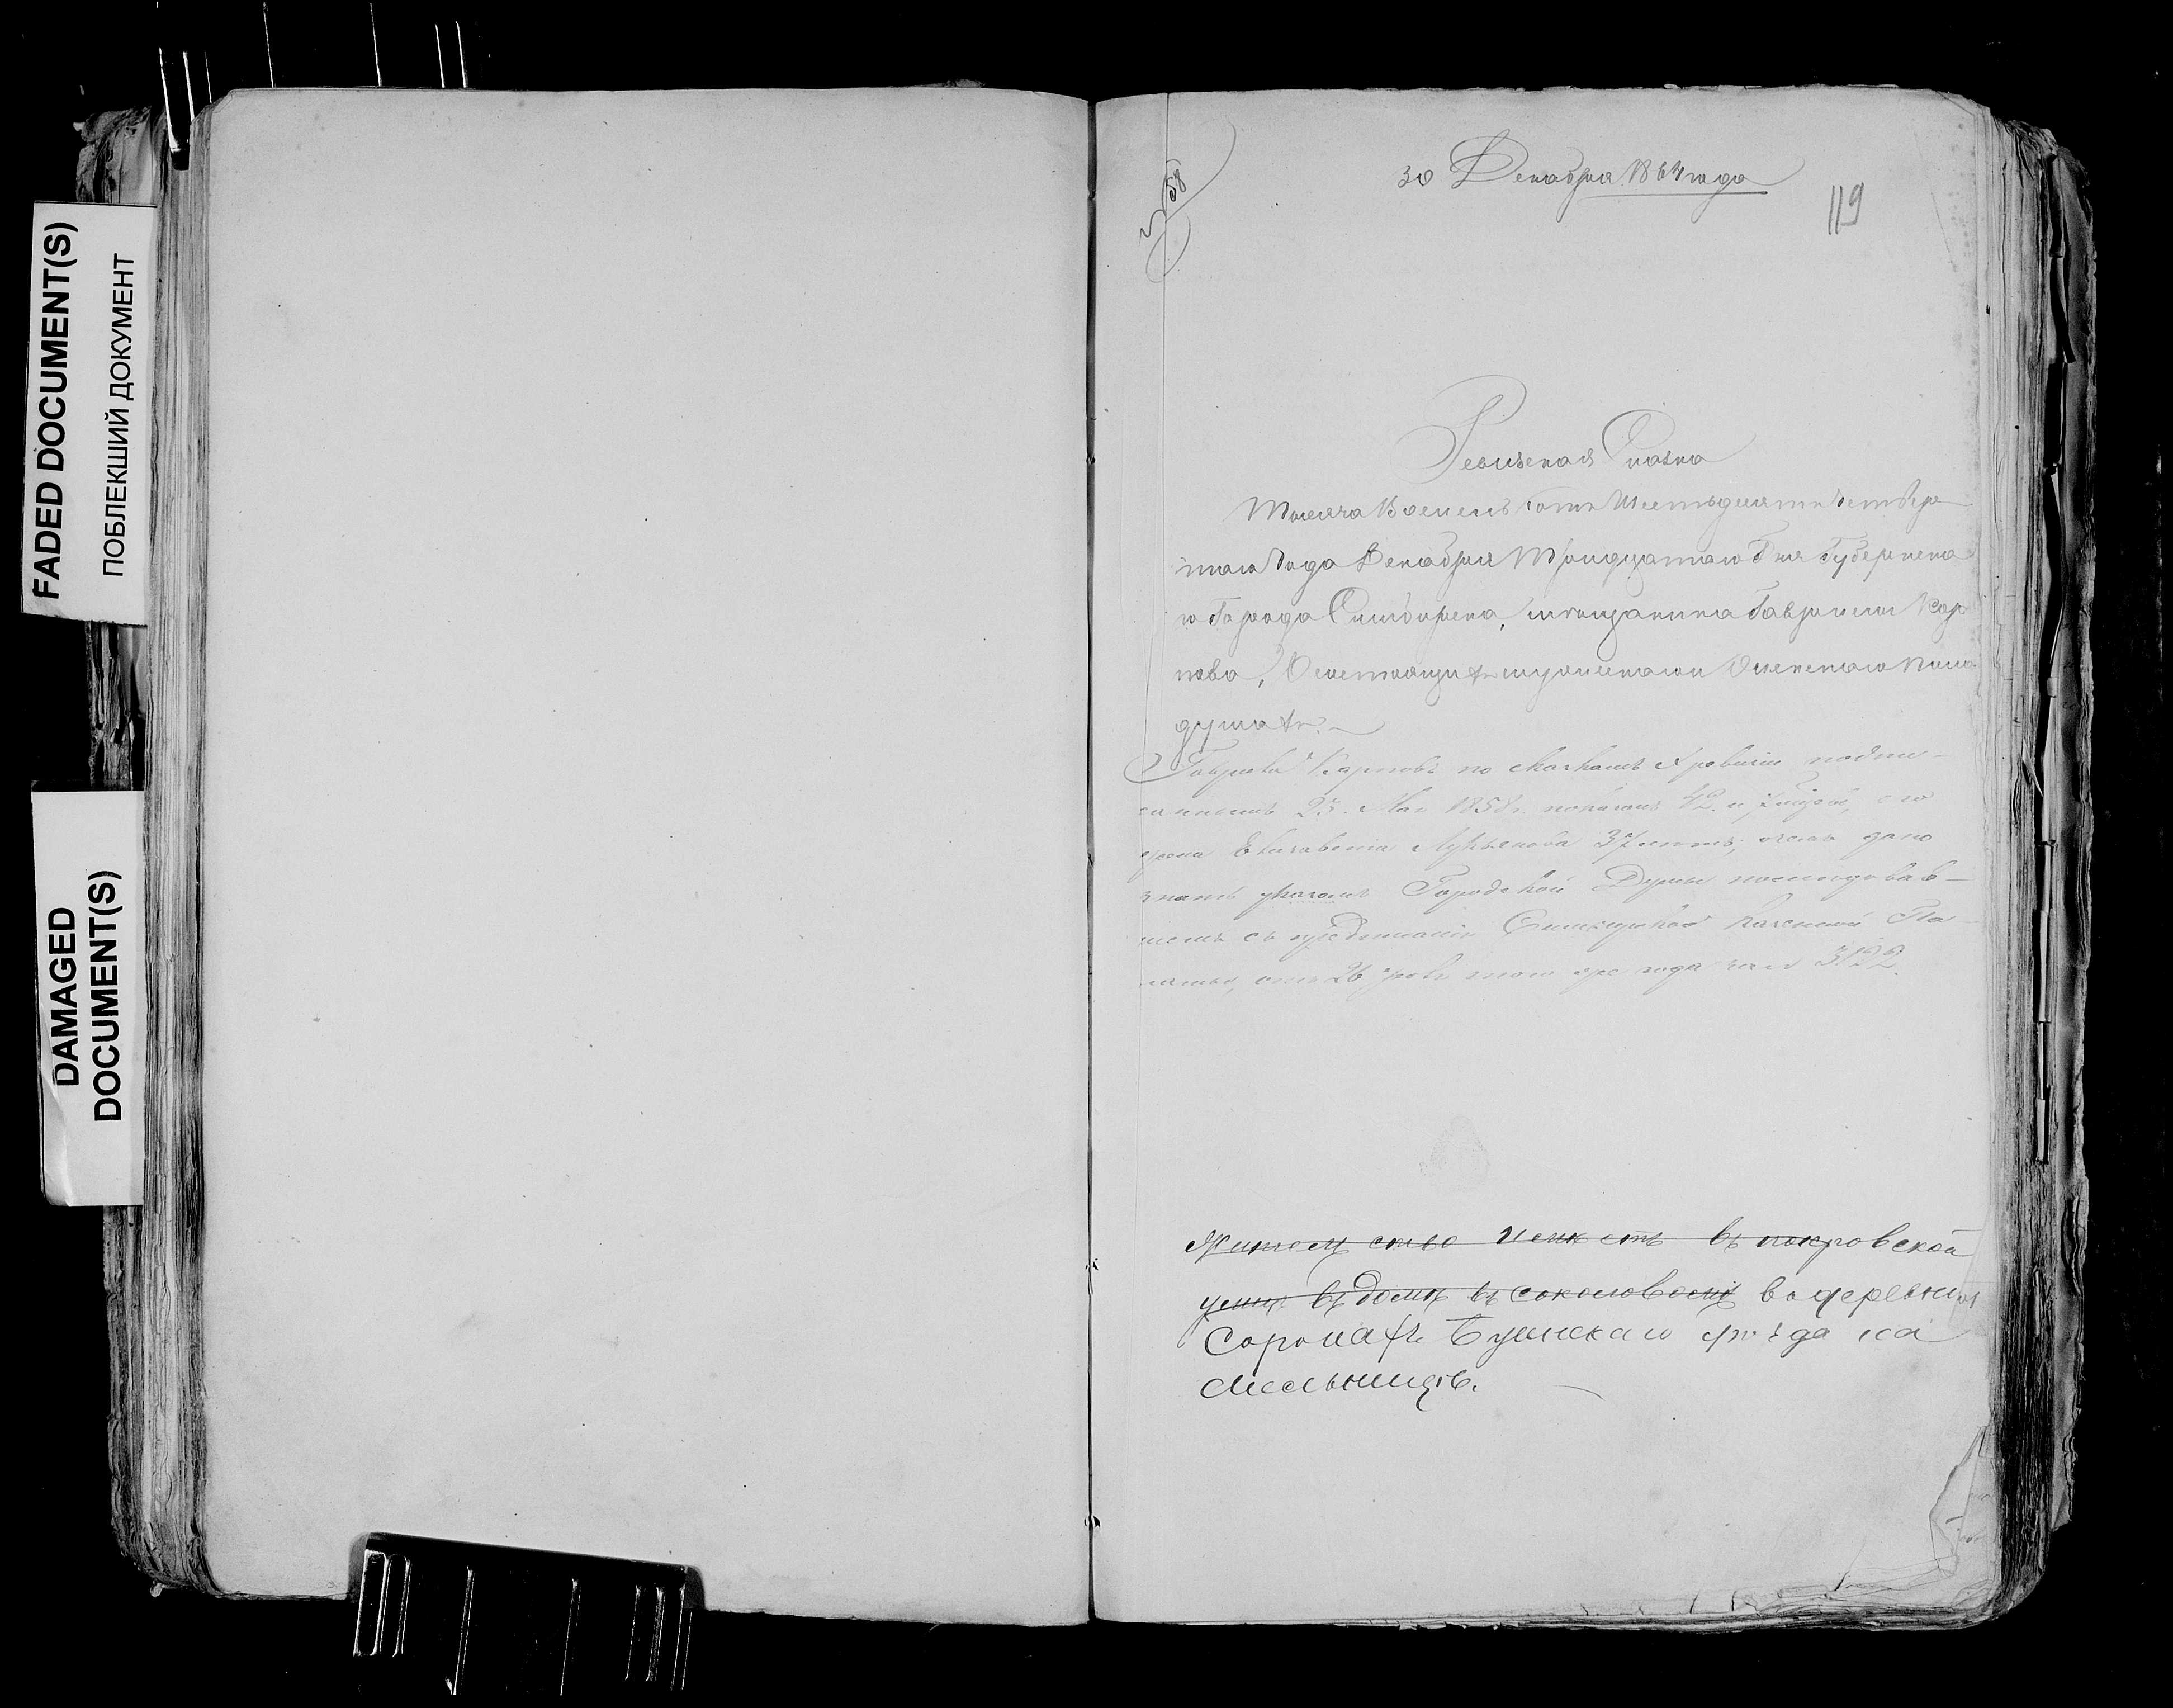 FADED DOCUMENT(S)
ПОБЛЕКШИЙ ДОКУМЕНТ
DAMAGED
DOCUMENT(S)
30 Декабря 1864 года
119
58
Ревизская Сказка
Тысяча Восемь сотъ Шестьдесятъ Четвер
таго Года Декабря Тридцатаго Дня Губернска
го Города Симбирска, мещанина Гаврилы Кар
пова, О состоящихъ мужескаго и женскаго пола
душахъ.
Гаврила Карповъ по сказкамъ X ревизіи подпи-
саннымъ 23. Мая 1858 г. показанъ 42. и
жена Елизавета Лукьянова 37 летъ, о чемъ дано
знать указомъ Городской Думы последовав-
шемъ съ предписанія Симбирской Казенной Па
латы, отъ 26 того же года за № 3122.
Жительство имеетъ въ покровской
улице въ доме въ соколовомъ в о деревни
Сорокахъ Буинскаго уезда на
Мельнице.